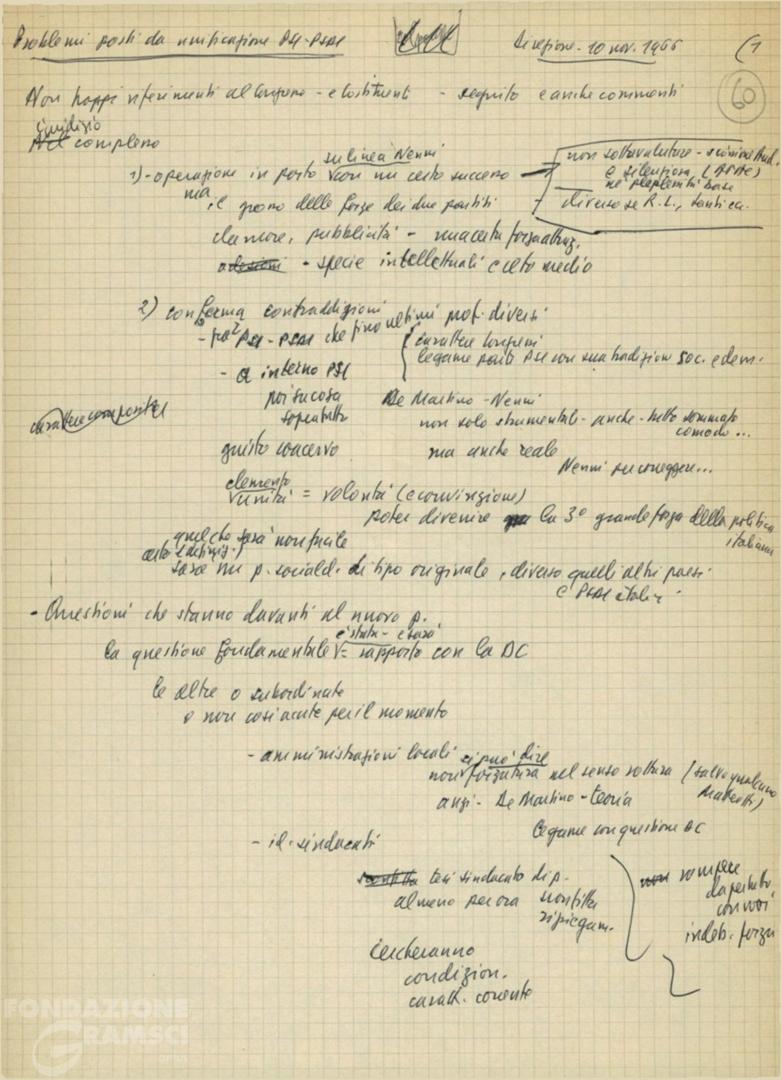 Problemi posti da unificazione PSI-PSDI
Direzione - 10 nov. 1966
(1
60
Non troppi riferimenti al Congresso - e Costituente - seguito e anche commenti
Giudizio
complesso
su linea Nenni
1) - operazione in porto con un certo successo
non sottovalutare - scissione Aud.
e silenziosa,
ne plebisciti base
diverso se R.L., Santi ecc.
ma, il grosso delle forze dei due partiti
clamore, pubblicità - una certa forza attraz.
adesioni - specie intellettuali e ceto medio
2) conferma contraddizioni
- tra PSI-PSDI che fino ultimi prof. diversi
carattere congressi
legame parti PSI con sua tradizione soc. e dem.
- a interno PSI
poi su cosa
soprattutto
De Martino - Nenni
non solo strumentale - anche - tutto sommato
comodo...
carattere composito
giusto conservo
ma anche reale
Nenni sa correggere...
elemento
unità = volontà (e convinzione)
poter divenire la 3ª grande forza della politica
italiana
quel che sarà non facile
certo
sarà un p. sociald. di tipo originale, diverso quelli altri paesi
e PSDI italia.
- Questioni che stanno davanti al nuovo p.
è stata - e sarà
la questione fondamentale = rapporto con la DC
le altre o subordinate
o non così acute per il momento
- amministrazioni locali
si può dire
non forzatura nel senso rottura (salvo qualcuno
Matteotti)
anzi - De Martino - teoria
legame con questione DC
- id. sindacati
tesi sindacato di p.
almeno per ora non fitta
ripiegam.
non rompere
dappertutto
con noi
indeb. forza
cercheranno
condizion.
caratt. corrente
FONDAZIONE
GRAMSCI